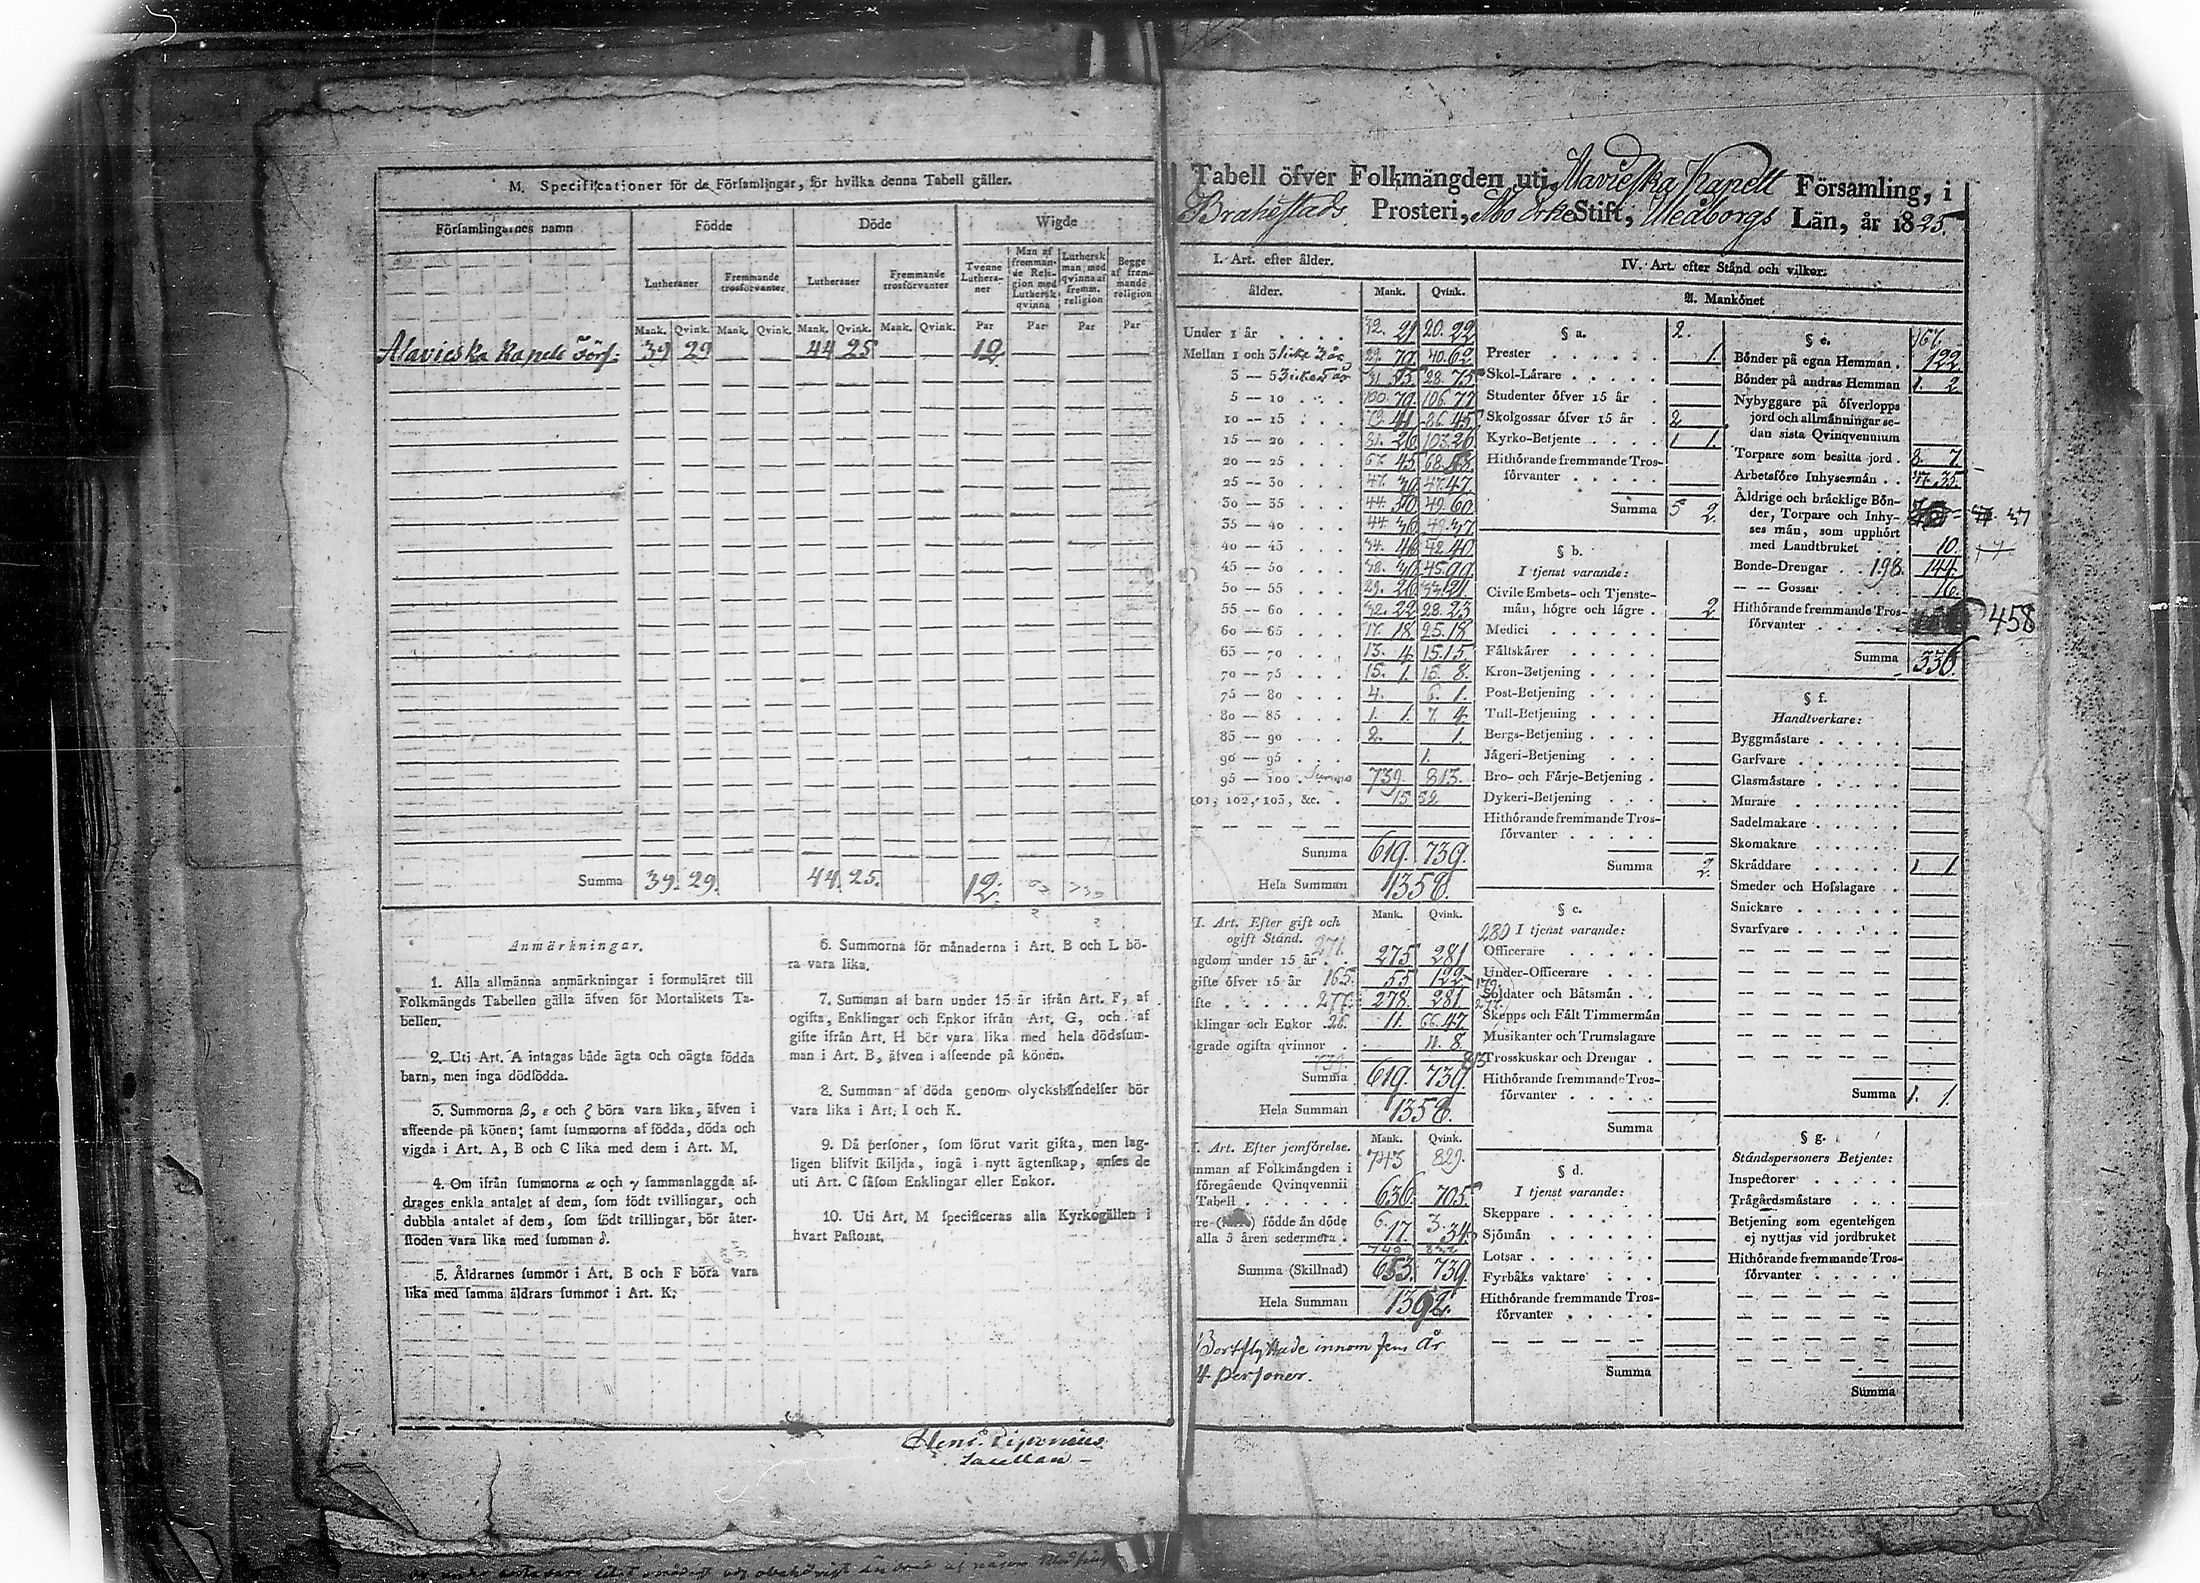 M. Specificationer för de Församlingar, för hvilka denna Tabell gäller.
Församlingarnes namn
Födde
Döde
Wigde
Lutheraner
Fremmande trosförvanter
Lutheraner
Fremmande trosförvanter
Tvenne Lutheraner
Man af fremmande Religion med Luthersk qvinna
Luthersk man med qvinna af fremm. religion
Begge af fremmande religion
Mank. Qvink. Mank. Qvink. Mank. Qvink. Mank. Qvink. Par Par Par Par
Alavieska Kapels Förs: 39 29 — — 44 25 — — 12 — — —
Summa 39. 29. 44 25. 12.
Anmärkningar.
1. Alla allmänna anmärkningar i formuläret till
Folkmängds Tabellen gälla äfven för Mortalitets Ta-
bellen.
2. Uti Art. A intagas både ägta och oägta födda
barn, men inga dödfödda.
3. Summorna β, ε och ζ böra vara lika, äfven i
afseende på könen; samt summorna af födda, döda och
vigda i Art. A, B och C lika med dem i Art. M.
4. Om ifrån summorna α och γ sammanlaggda af-
drages enkla antalet af dem, som födt tvillingar, och
dubbla antalet af dem, som födt trillingar, bör åter-
stoden vara lika med summan δ.
5. Åldrarnes summor i Art. B och F böra vara
lika med samma åldrars summor i Art. K.
6. Summorna för månaderna i Art. B och L bö-
ra vara lika.
7. Summan af barn under 15 år ifrån Art. F, af
ogifta, Enklingar och Enkor ifrån Art. G, och af
gifte ifrån Art. H bör vara lika med hela dödssum-
man i Art. B, äfven i afseende på könen.
8. Summan af döda genom olyckshändelser bör
vara lika i Art. I och K.
9. Då personer, som förut varit gifta, men lag-
ligen blifvit skiljda, ingå i nytt ägtenskap, anses de
uti Art. C såsom Enklingar eller Enkor.
10. Uti Art. M specificeras alla Kyrkogällen i
hvart Pastorat.
Tabell öfver Folkmängden uti Alavieska Kapell Församling, i
Brahestads Prosteri, Åbo Ärke Stift, Uleåborgs Län, år 1825.
I. Art. efter ålder.
ålder. Mank. Qvink.
Under 1 år 32. 21 20. 22
Mellan 1 och 3
3 — 5
5 — 10 100. 79 106. 77
10 — 15
15 — 20 81. 26 103. 26
20 — 25
25 — 30 47. 36 47. 47
30 — 35 44. 30 49. 60
35 — 40 44. 36 49. 37
40 — 45
45 — 50
50 — 55 29. 26 33. 21
55 — 60 32. 22 28. 23
60 — 65 17. 18 25. 18
65 — 70 13. 4 15. 15
70 — 75 15. 1. 15. 8.
75 — 80 4. 6. 1.
80 — 85 1. 1. 7. 4.
85 — 90 2. 1.
90 — 95 1.
95 — 100 Summa 739. 813.
101, 102, 103, &c. 15 52
Summa 619. 739.
Hela Summan 1358.
II. Art. Efter gift och
ogift Stånd. Mank. Qvink.
ngdom under 15 år 271. 275 281 280
gifte öfver 15 år 165. 55 122
ifte 277. 278. 281
nklingar och Enkor 26. 11. 66. 47
grade ogifta qvinnor 11. 8
739. 813
Summa 619. 739.
Hela Summan 1358.
I. Art. Efter jemförelse. Mank. Qvink.
743 829.
mman af Folkmängden i
föregående Qvinqvennii
Tabell 636. 705.
födde än döde
alla 5 åren sedermera 6. 17. 3. 34.
749 832
Summa (Skillnad) 653. 739.
Hela Summan 1392.
Bortflyttade innom fem År
4 personer.
IV. Art. efter Stånd och vilkor.
A. Mankönet
§ a.
Prester 2. 1.
Skol-Lärare
Studenter öfver 15 år
Skolgossar öfver 15 år 2
Kyrko-Betjente 1 1.
Hithörande fremmande Tros-
förvanter
Summa 5 2.
§ b.
I tjenst varande:
Civile Embets- och Tjenste-
män, högre och lägre 2.
Medici
Fältskärer
Kron-Betjening
Post-Betjening
Tull-Betjening
Bergs-Betjening
Jägeri-Betjening
Bro- och Färje-Betjening
Dykeri-Betjening
Hithörande fremmande Tros-
förvanter
Summa 2.
§ c.
I tjenst varande:
Officerare
Under-Officerare
Soldater och Båtsmän
Skepps och Fält Timmermän
Musikanter och Trumslagare
Trosskuskar och Drengar
Hithörande fremmande Tros-
förvanter
Summa
§ d.
I tjenst varande:
Skeppare
Sjömän
Lotsar
Fyrbåks vaktare
Hithörande fremmande Tros-
förvanter
Summa
§ e.
Bönder på egna Hemman 167. 122.
Bönder på andras Hemman 1. 2
Nybyggare på öfverlopps
jord och allmänningar se-
dan sista Qvinqvennium
Torpare som besitta jord 8. 7.
Arbetsföre Inhysesmän 47. 35.
Äldrige och bräcklige Bön-
der, Torpare och Inhy-
ses män, som upphört
med Landtbruket 10. 37
Bonde-Drengar 198. 144.
— — Gossar 16.
Hithörande fremmande Tros-
förvanter 458
Summa 336.
§ f.
Handtverkare:
Byggmästare
Garfvare
Glasmästare
Murare
Sadelmakare
Skomakare
Skräddare 1 1
Smeder och Hofslagare
Snickare
Svarfvare
Summa 1. 1.
§ g.
Ståndspersoners Betjente:
Inspector
Trägårdsmästare
Betjening som egenteligen
ej nyttjas vid jordbruket
Hithörande fremmande Tros-
förvanter
Summa